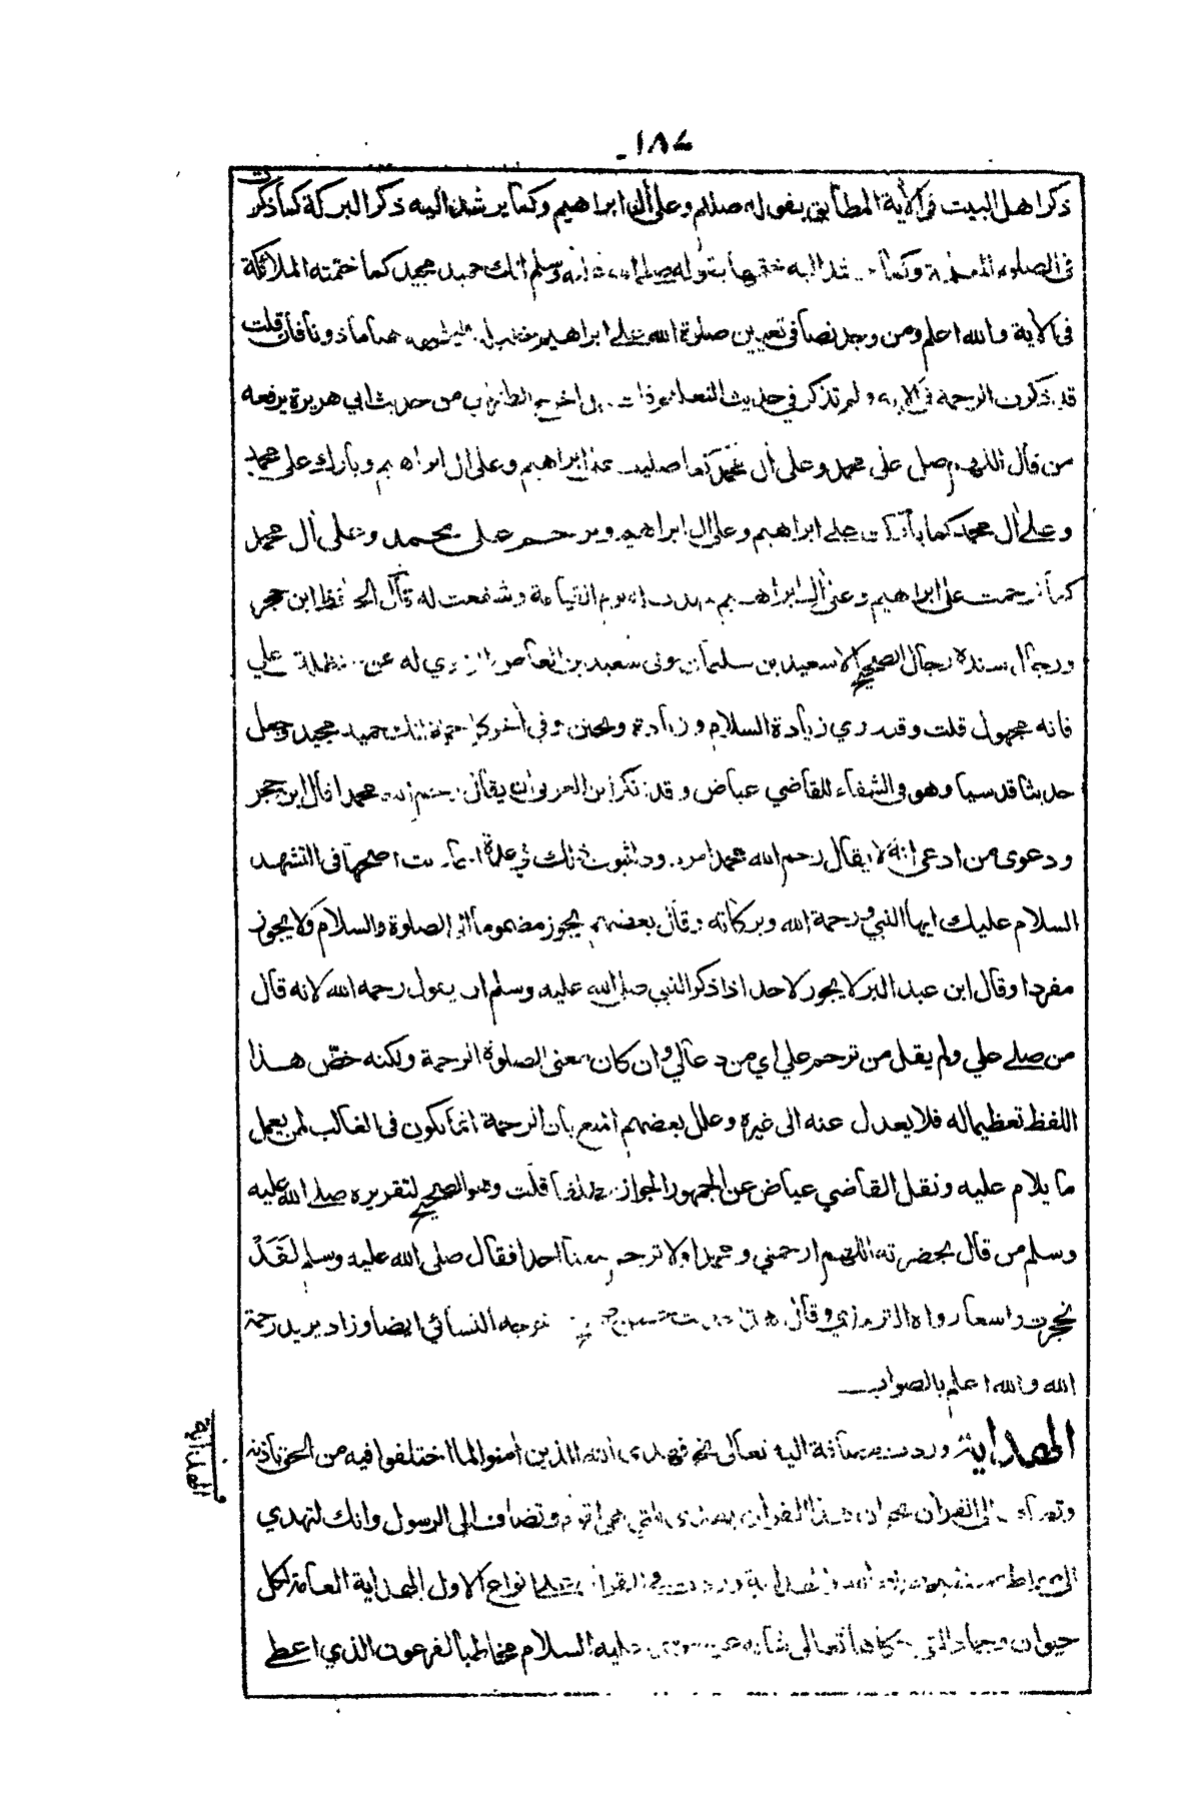 ١٨٧
ذكر اهل البيت في الآية المطابق بقوله صلعم وعلى آل ابراهيم وكما يرشد اليه ذكر البركة كما ذكرت
في الصلوة وكما اليه ختمها بقوله صلى الله عليه وسلم انك حميد مجيد كما ختمته الملائكة
في الآية والله اعلم ومن وجد نصا في تعيين صلوة الله على ابراهيم فان قلت
قد ذكرت الرحمة في الآية ولم تذكر في حديث التعليم قلت بل اخرج من حديث ابي هريرة يرفعه
من قال اللهم صل على محمد وعلى آل محمد كما صليت على ابراهيم وعلى آل ابراهيم وبارك على محمد
وعلى آل محمد كما باركت على ابراهيم وعلى آل ابراهيم وترحم على محمد وعلى آل محمد
كما ترحمت على ابراهيم وعلى آل ابراهيم يوم القيامة وشفعت له قال الحافظ ابن حجر
ورجال سنده رجال الصحيح الا سعيد بن سليمان مولى سعيد بن العاص الراوي له عن حنظلة بن علي
فانه مجهول قلت وقد روي زيادة السلام وزيادة وتحنن وفي آخر كل انك حميد مجيد وجعل
حديثا قدسيا وهو في الشفاء للقاضي عياض وقد انكر ابن العربي ان يقال محمدا قال ابن حجر
ودعوى من ادعى انه لا يقال رحم الله محمدا مردود لثبوت ذلك في عدة احاديث اصحها في التشهد
السلام عليك ايها النبي ورحمة الله وبركاته وقال بعضهم يجوز مضموما الى الصلوة والسلام ولا يجوز
مفردا وقال ابن عبد البر لا يجوز لاحد اذا ذكر النبي صلى الله عليه وسلم ان يقول رحمه الله لانه قال
من صلى علي ولم يقل من ترحم علي اي من دعا لي وان كان معنى الصلوة الرحمة ولكنه خصّ هذا
اللفظ تعظيما له فلا يعدل عنه الى غيره وعلل بعضهم المنع بان الرحمة انما تكون في الغالب لمن يعمل
ما يلام عليه ونقل القاضي عياض عن الجمهور الجواز مطلقا قلت وهو الصحيح لتقريره صلى الله عليه
وسلم من قال بحضرته اللهم ارحمني ومحمدا ولا ترحم معنا احدا فقال صلى الله عليه وسلم لَقَدْ
تحجرت واسعا رواه الترمذي وقال حسن صحيح خرجه النسائي ايضا وزاد يريد رحمة
الله والله اعلم بالصواب
الهداية وردت مضافة اليه تعالى نحو فهدى الله الذين آمنوا لما اختلفوا فيه من الحق باذنه
الهداية
الى القرآن نحو ان هذا القرآن يهدي للتي هي اقوم وتضاف الى الرسول وانك لتهدي
الى صراط مستقيم وردت في القرآن على انواع الاول الهداية العامة لكل
حيوان وجماد تعالى عن موسى عليه السلام مخاطبا لفرعون الذي اعطى